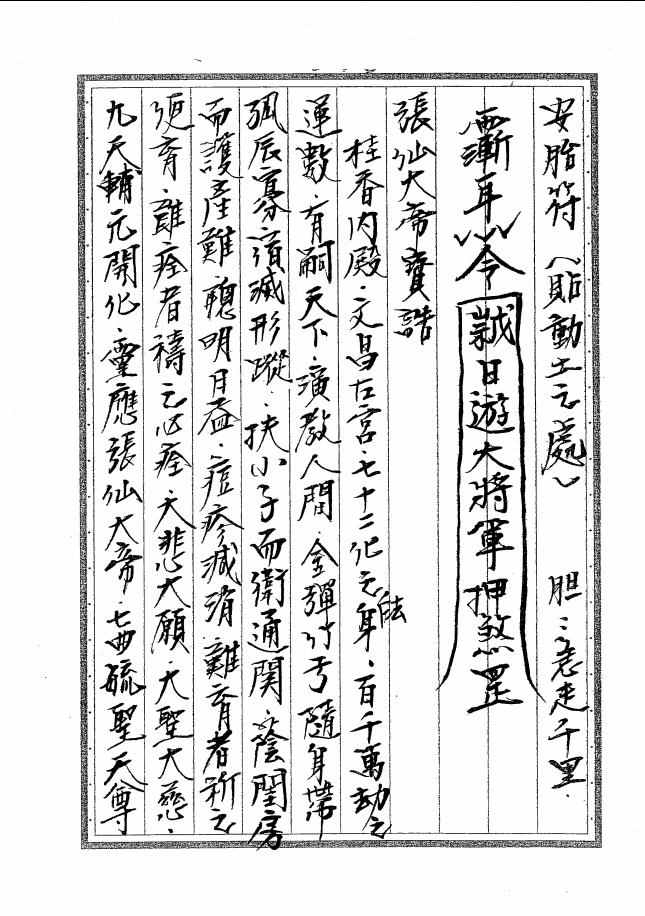 安胎符（貼動土之處）　胆：急走千里．
斬耳　令　誠日遊大將軍押煞罡
張仙大帝寶誥
桂香內殿．文昌左宮．七十二化之法身．百千萬劫之
運數．有嗣天下．演教人間．金彈竹弓隨身帶
孤辰寡宿滅形蹤．扶小子而衛通関．蔭閨房
而護產難．聰明日益．痘疹減消．難育者祈之
便育．難痊者禱之必痊．大悲大願．大聖大慈．
九天輔元開化．靈應張仙大帝．七曲毓聖天尊